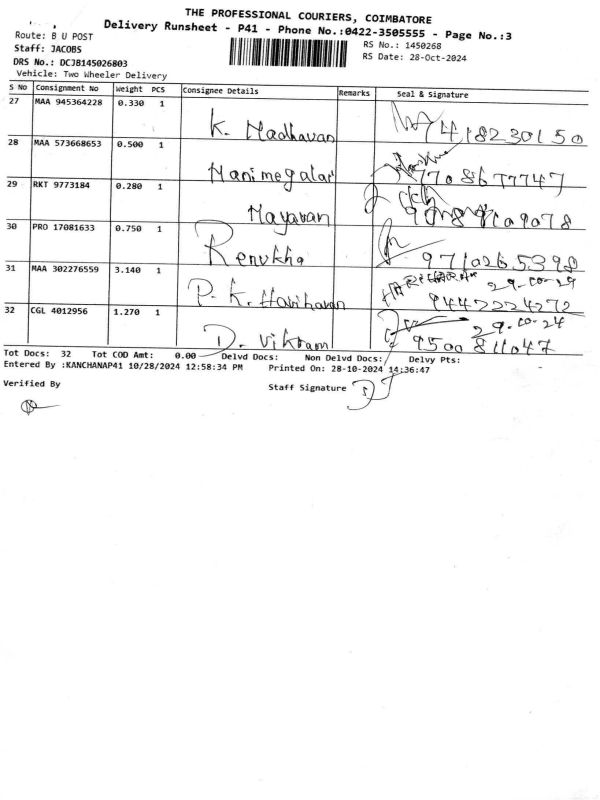 THE PROFESSIONAL COURIERS, COIMBATORE
Delivery Runsheet - P41 - Phone No.:0422-3505555 - Page No.:3
Route: B U POST
RS No.: 1450268
Staff: JACOBS
RS Date: 28-Oct-2024
DRS No.: DCJB145026803
Vehicle: Two Wheeler Delivery
S No Consignment No Weight PCS Consignee Details Remarks Seal & Signature
27 MAA 945364228 0.330 1 K. Madhavan 7418230150
28 MAA 573668653 0.500 1 Manimegalai 7708677747
29 RKT 9773184 0.280 1 Mayavan
30 PRO 17081633 0.750 1 Renukha 9710265398
31 MAA 302276559 3.140 1 P. K. Hariharan 29-10-24
9447224272
32 CGL 4012956 1.270 1 D. Vikram 29-10-24
9500811047
Tot Docs: 32 Tot COD Amt: 0.00 Delvd Docs: Non Delvd Docs: Delvy Pts:
Entered By :KANCHANAP41 10/28/2024 12:58:34 PM Printed On: 28-10-2024 14:36:47
Verified By
Staff Signature